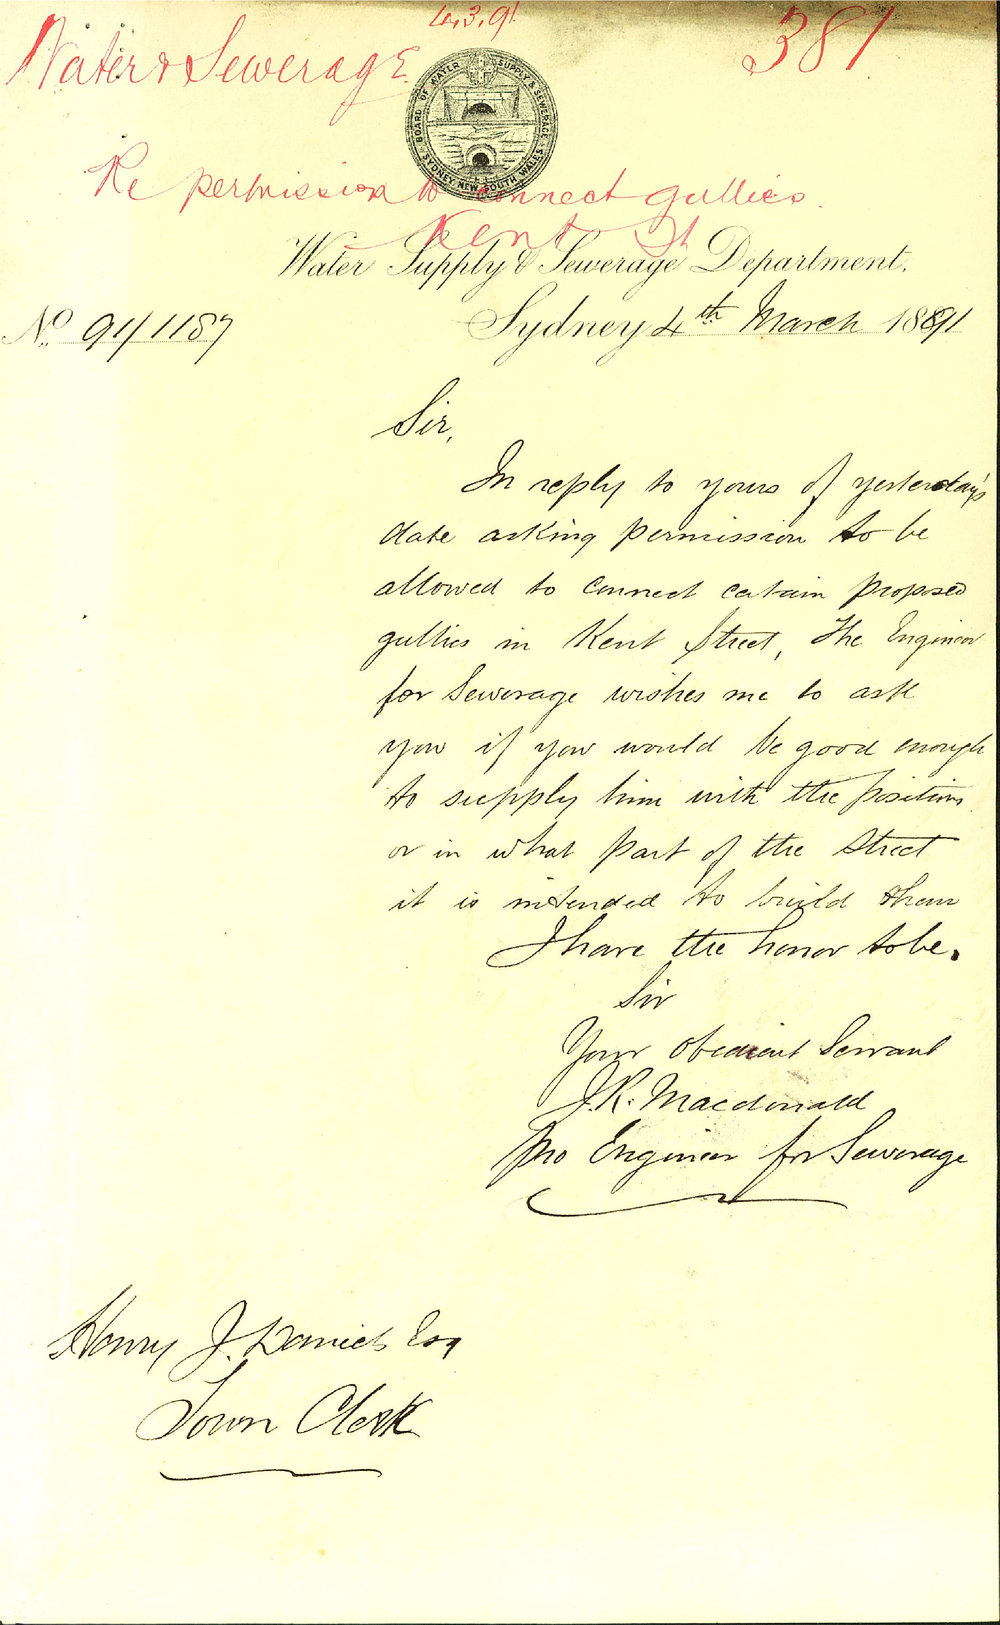 4.3.91
Water & Sewerage
381
BOARD OF WATER SUPPLY & SEWERAGE
SYDNEY NEW SOUTH WALES
Re permission to connect gullies
Kent St
Water Supply & Sewerage Department.
No. 91/1187
Sydney 4th March 1891
Sir,
In reply to yours of yesterday's
date asking permission to be
allowed to connect certain proposed
gullies in Kent Street, The Engineer
for Sewerage wishes me to ask
you if you would be good enough
to supply him with the position
or in what part of the Street
it is intended to build them
I have the honor to be.
Sir
Your obedient Servant
J.R. Macdonald
pro Engineer for Sewerage
Henry J. Daniels Esq
Town Clerk